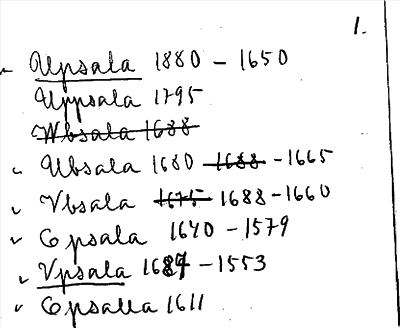 1.
Upsala 1880 – 1650
Uppsala 1795
Wbsala 1688
Ubsala 1680 1688 – 1665
Vbsala 1675 1688 – 1660
Opsala 1640 – 1579
Vpsala 1687 – 1553
Opsalla 1611